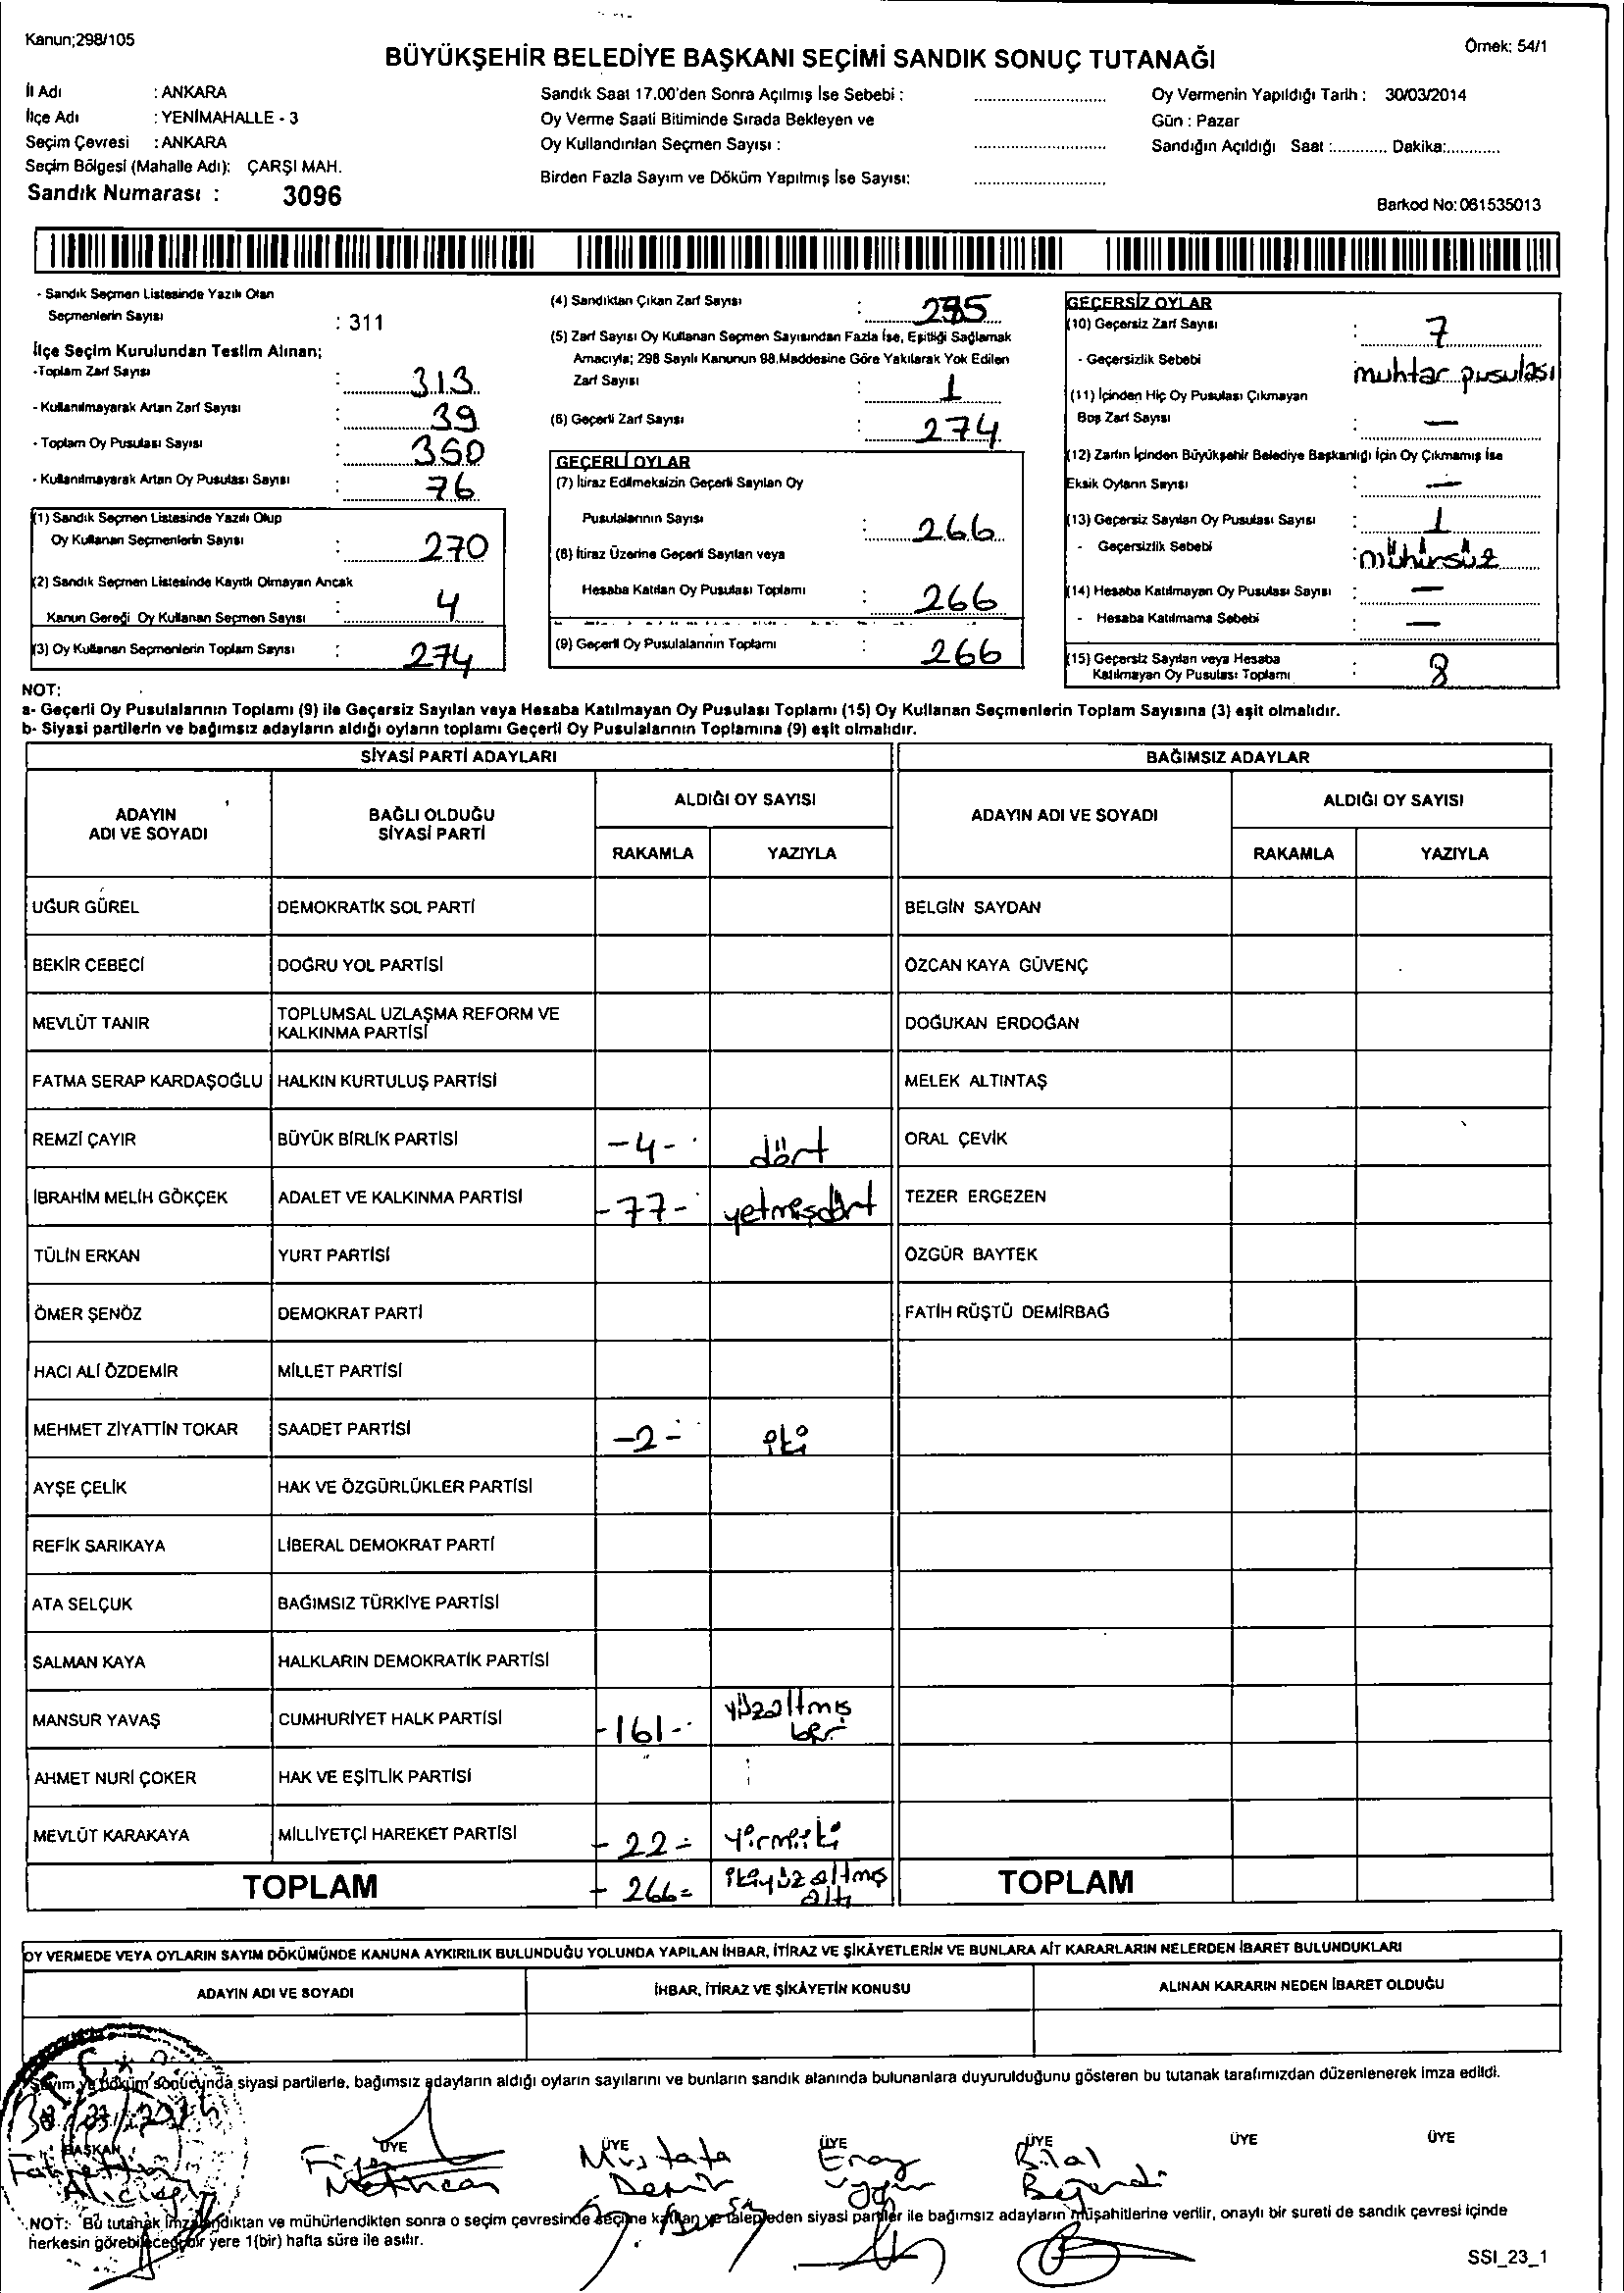 Kanun;298/105
Örnek: 54/1
BÜYÜKŞEHİR BELEDİYE BAŞKANI SEÇİMİ SANDIK SONUÇ TUTANAĞI
İl Adı : ANKARA
İlçe Adı : YENİMAHALLE - 3
Seçim Çevresi : ANKARA
Seçim Bölgesi (Mahalle Adı): ÇARŞI MAH.
Sandık Numarası : 3096
Sandık Saat 17.00'den Sonra Açılmış İse Sebebi :
Oy Verme Saati Bitiminde Sırada Bekleyen ve
Oy Kullandırılan Seçmen Sayısı :
Birden Fazla Sayım ve Döküm Yapılmış İse Sayısı:
Oy Vermenin Yapıldığı Tarih : 30/03/2014
Gün : Pazar
Sandığın Açıldığı Saat :............ Dakika:...........
Barkod No:061535013
- Sandık Seçmen Listesinde Yazılı Olan
Seçmenlerin Sayısı : 311
İlçe Seçim Kurulundan Teslim Alınan;
-Toplam Zarf Sayısı : 313
- Kullanılmayarak Artan Zarf Sayısı : 39
- Toplam Oy Pusulası Sayısı : 350
- Kullanılmayarak Artan Oy Pusulası Sayısı : 76
(1) Sandık Seçmen Listesinde Yazılı Olup
Oy Kullanan Seçmenlerin Sayısı : 270
(2) Sandık Seçmen Listesinde Kayıtlı Olmayan Ancak
Kanun Gereği Oy Kullanan Seçmen Sayısı : 4
(3) Oy Kullanan Seçmenlerin Toplam Sayısı : 274
(4) Sandıktan Çıkan Zarf Sayısı :
(5) Zarf Sayısı Oy Kullanan Seçmen Sayısından Fazla İse, Eşitliği Sağlamak
Amacıyla; 298 Sayılı Kanunun 98.Maddesine Göre Yakılarak Yok Edilen
Zarf Sayısı : 1
(6) Geçerli Zarf Sayısı : 274
GEÇERLİ OYLAR
(7) İtiraz Edilmeksizin Geçerli Sayılan Oy
Pusulalarının Sayısı : 266
(8) İtiraz Üzerine Geçerli Sayılan veya
Hesaba Katılan Oy Pusulası Toplamı : 266
(9) Geçerli Oy Pusulalarının Toplamı : 266
GEÇERSİZ OYLAR
(10) Geçersiz Zarf Sayısı : 7
- Geçersizlik Sebebi muhtar pusulası
(11) İçinden Hiç Oy Pusulası Çıkmayan
Boş Zarf Sayısı : —
(12) Zarfın İçinden Büyükşehir Belediye Başkanlığı İçin Oy Çıkmamış İse
Eksik Oyların Sayısı : —
(13) Geçersiz Sayılan Oy Pusulası Sayısı : 1
- Geçersizlik Sebebi : mühürsüz
(14) Hesaba Katılmayan Oy Pusulası Sayısı : —
- Hesaba Katılmama Sebebi : —
(15) Geçersiz Sayılan veya Hesaba
Katılmayan Oy Pusulası Toplamı : 8
NOT:
a- Geçerli Oy Pusulalarının Toplamı (9) ile Geçersiz Sayılan veya Hesaba Katılmayan Oy Pusulası Toplamı (15) Oy Kullanan Seçmenlerin Toplam Sayısına (3) eşit olmalıdır.
b- Siyasi partilerin ve bağımsız adayların aldığı oyların toplamı Geçerli Oy Pusulalarının Toplamına (9) eşit olmalıdır.
SİYASİ PARTİ ADAYLARI BAĞIMSIZ ADAYLAR
ADAYIN ADI VE SOYADI BAĞLI OLDUĞU SİYASİ PARTİ ALDIĞI OY SAYISI ADAYIN ADI VE SOYADI ALDIĞI OY SAYISI
RAKAMLA YAZIYLA RAKAMLA YAZIYLA
UĞUR GÜREL DEMOKRATİK SOL PARTİ BELGİN SAYDAN
BEKİR CEBECİ DOĞRU YOL PARTİSİ ÖZCAN KAYA GÜVENÇ
MEVLÜT TANIR TOPLUMSAL UZLAŞMA REFORM VE KALKINMA PARTİSİ DOĞUKAN ERDOĞAN
FATMA SERAP KARDAŞOĞLU HALKIN KURTULUŞ PARTİSİ MELEK ALTINTAŞ
REMZİ ÇAYIR BÜYÜK BİRLİK PARTİSİ -4- dört ORAL ÇEVİK
İBRAHİM MELİH GÖKÇEK ADALET VE KALKINMA PARTİSİ -77- yetmişdört TEZER ERGEZEN
TÜLİN ERKAN YURT PARTİSİ ÖZGÜR BAYTEK
ÖMER ŞENÖZ DEMOKRAT PARTİ FATİH RÜŞTÜ DEMİRBAĞ
HACI ALİ ÖZDEMİR MİLLET PARTİSİ
MEHMET ZİYATTİN TOKAR SAADET PARTİSİ -2- iki
AYŞE ÇELİK HAK VE ÖZGÜRLÜKLER PARTİSİ
REFİK SARIKAYA LİBERAL DEMOKRAT PARTİ
ATA SELÇUK BAĞIMSIZ TÜRKİYE PARTİSİ
SALMAN KAYA HALKLARIN DEMOKRATİK PARTİSİ
MANSUR YAVAŞ CUMHURİYET HALK PARTİSİ -161- yüzaltmış bir
AHMET NURİ ÇOKER HAK VE EŞİTLİK PARTİSİ
MEVLÜT KARAKAYA MİLLİYETÇİ HAREKET PARTİSİ -22- yirmiiki
TOPLAM - 266- ikiyüzaltmış altı TOPLAM
OY VERMEDE VEYA OYLARIN SAYIM DÖKÜMÜNDE KANUNA AYKIRILIK BULUNDUĞU YOLUNDA YAPILAN İHBAR, İTİRAZ VE ŞİKÂYETLERİN VE BUNLARA AİT KARARLARIN NELERDEN İBARET BULUNDUKLARI
ADAYIN ADI VE SOYADI İHBAR, İTİRAZ VE ŞİKÂYETİN KONUSU ALINAN KARARIN NEDEN İBARET OLDUĞU
Sayım ve döküm sonucunda siyasi partilerle, bağımsız adayların aldığı oyların sayılarını ve bunların sandık alanında bulunanlara duyurulduğunu gösteren bu tutanak tarafımızdan düzenlenerek imza edildi.
30/03/2014
BAŞKAN ÜYE ÜYE ÜYE ÜYE ÜYE ÜYE
Fahrettin Mustafa Eray Bilal
Demir Uygun
NOT: Bu tutanak imzalandıktan ve mühürlendikten sonra o seçim çevresinde seçime katılan ve talep eden siyasi partiler ile bağımsız adayların müşahitlerine verilir, onaylı bir sureti de sandık çevresi içinde
herkesin görebileceği bir yere 1(bir) hafta süre ile asılır.
SSI_23_1